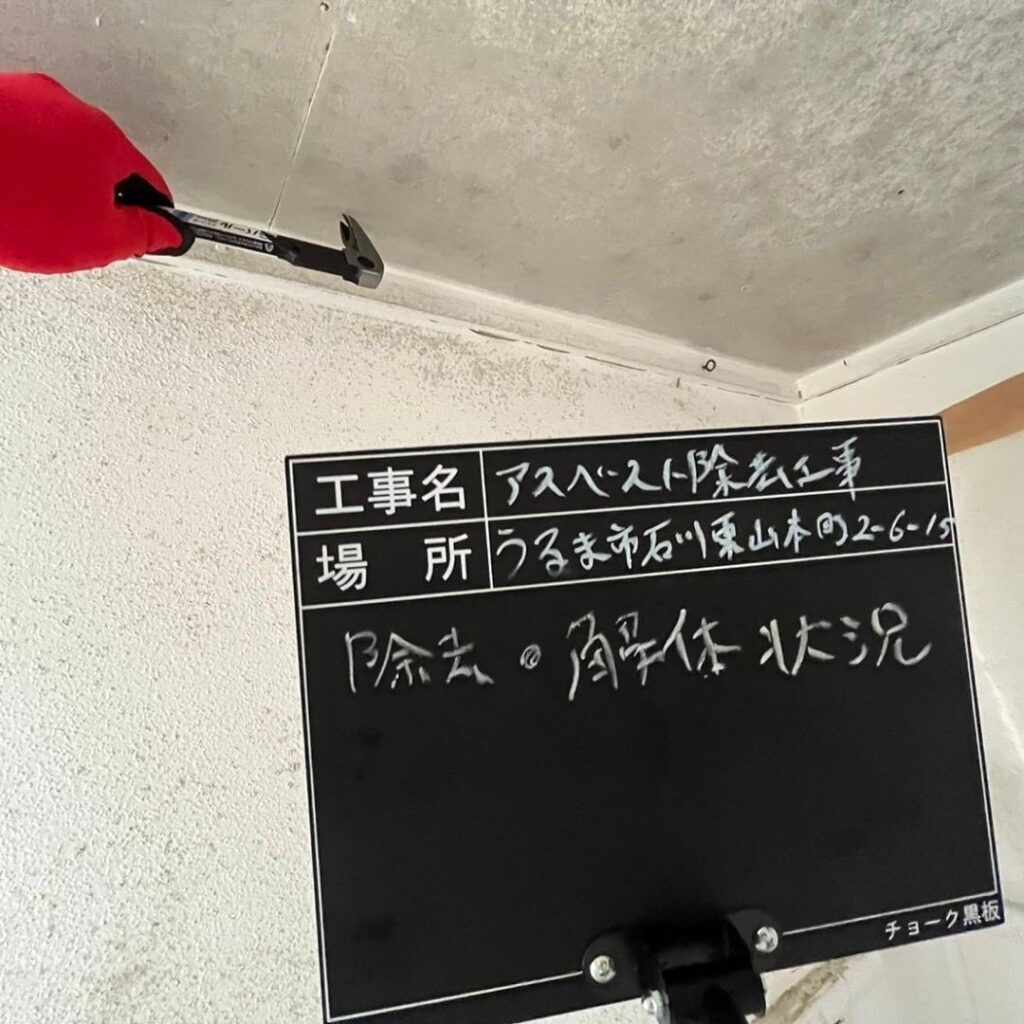 工事名 アスベスト除去工事
場所 うるま市石川東山本町2-6-15
除去・解体状況
チョーク黒板